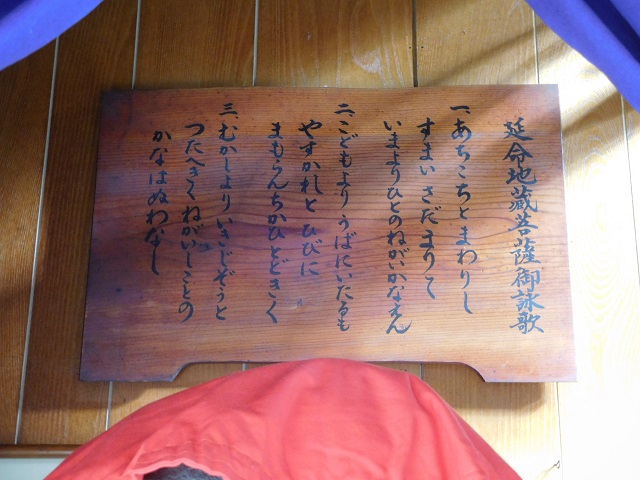 延命地蔵菩薩御詠歌
一、あちこちとまわりし
すまいさだまりて
いまよりひとのねがいかなえん
二、こどもより うばにいたるも
やすかれと ひびに
まもらんちかひとどきく
三、むかしより いきじぞうと
つたへきくねがいしことの
かなはぬわなし